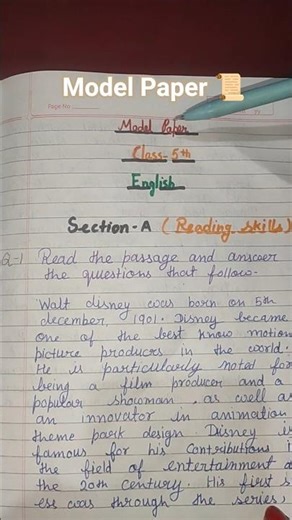 Model Paper 📜
Page No
Model Paper
Class-5th
English
Section-A (Reading skills)
Q-1 Read the passage and answer
the questions that follow-
Walt disney was born on 5th
december, 1901. Disney became
one of the best know motion
picture producers in the world.
He is particularly noted for
being a film producer and a
popular showman, as well as
an innovator in animation
theme park design. Disney is
famous for his contributions i
the field of entertainment d
the 20th century. His first s
ess was through the series,